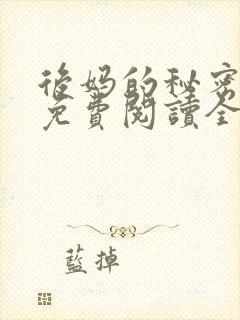 後妈的秘密
免費閱讀全
藍掉